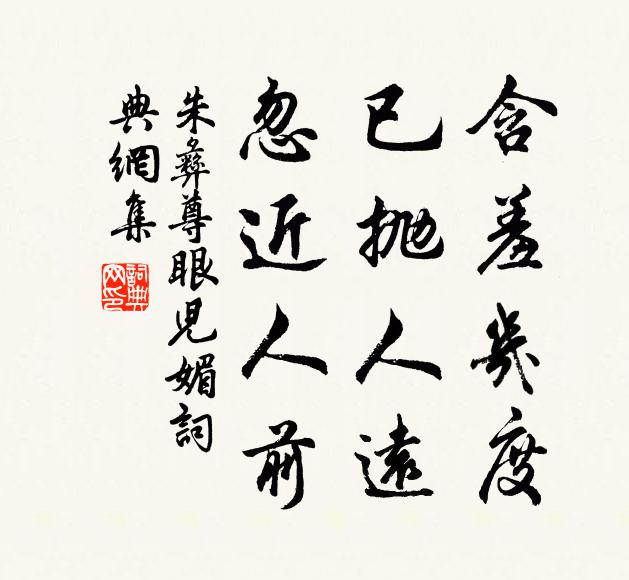 含羞幾度
已抛人遠
忽近人前
朱彝尊眼兒媚詞
典網集
詞典网印